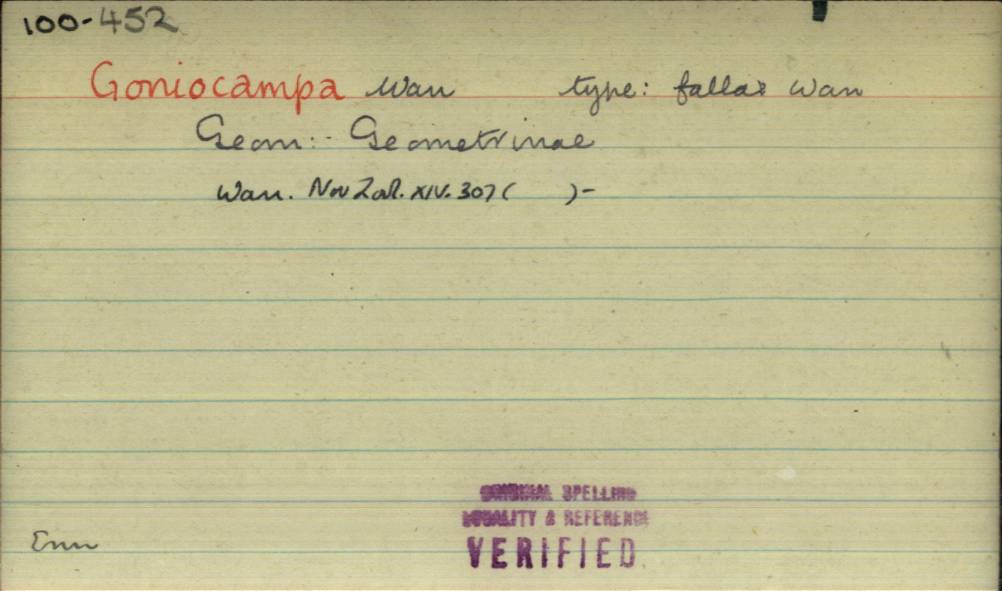 100-452
Goniocampa Warr type: fallax Warr
Geom:- Geometrinae
Warr. Nov Zool. XIV. 307 ( ) -
ORIGINAL SPELLING
LOCALITY & REFERENCE
VERIFIED.
Enn